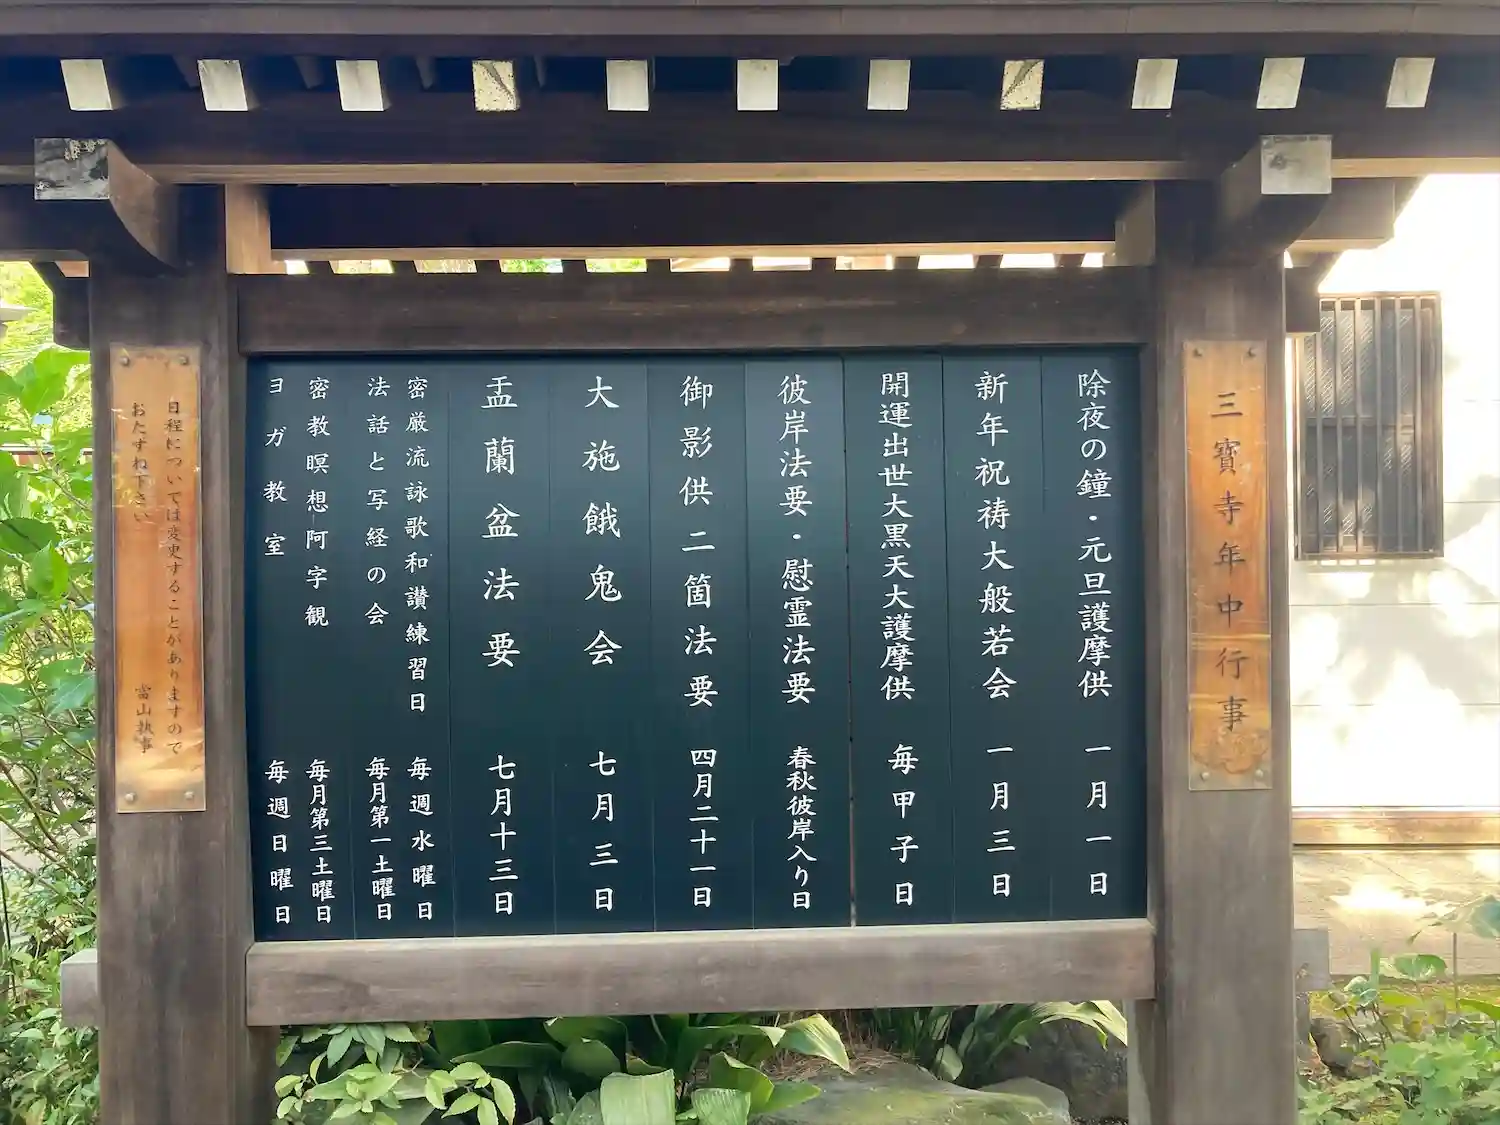 三寳寺年中行事
除夜の鐘・元旦護摩供 一月一日
新年祝祷大般若会 一月三日
開運出世大黒天大護摩供 毎甲子日
彼岸法要・慰霊法要 春秋彼岸入り日
御影供二箇法要 四月二十一日
大施餓鬼会 七月三日
盂蘭盆法要 七月十三日
密厳流詠歌和讃練習日 毎週水曜日
法話と写経の会 毎月第一土曜日
密教瞑想阿字観 毎月第三土曜日
ヨガ教室 毎週日曜日
日程については変更することがありますので
おたすね下さい 當山執事